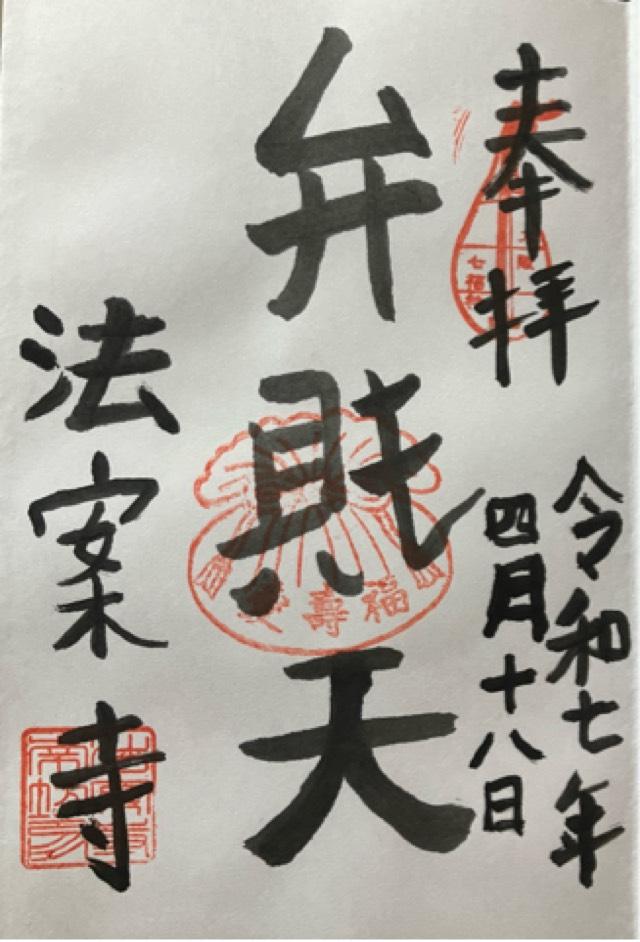 奉拝
令和七年
四月十八日
弁財天
七福
福壽
法案寺